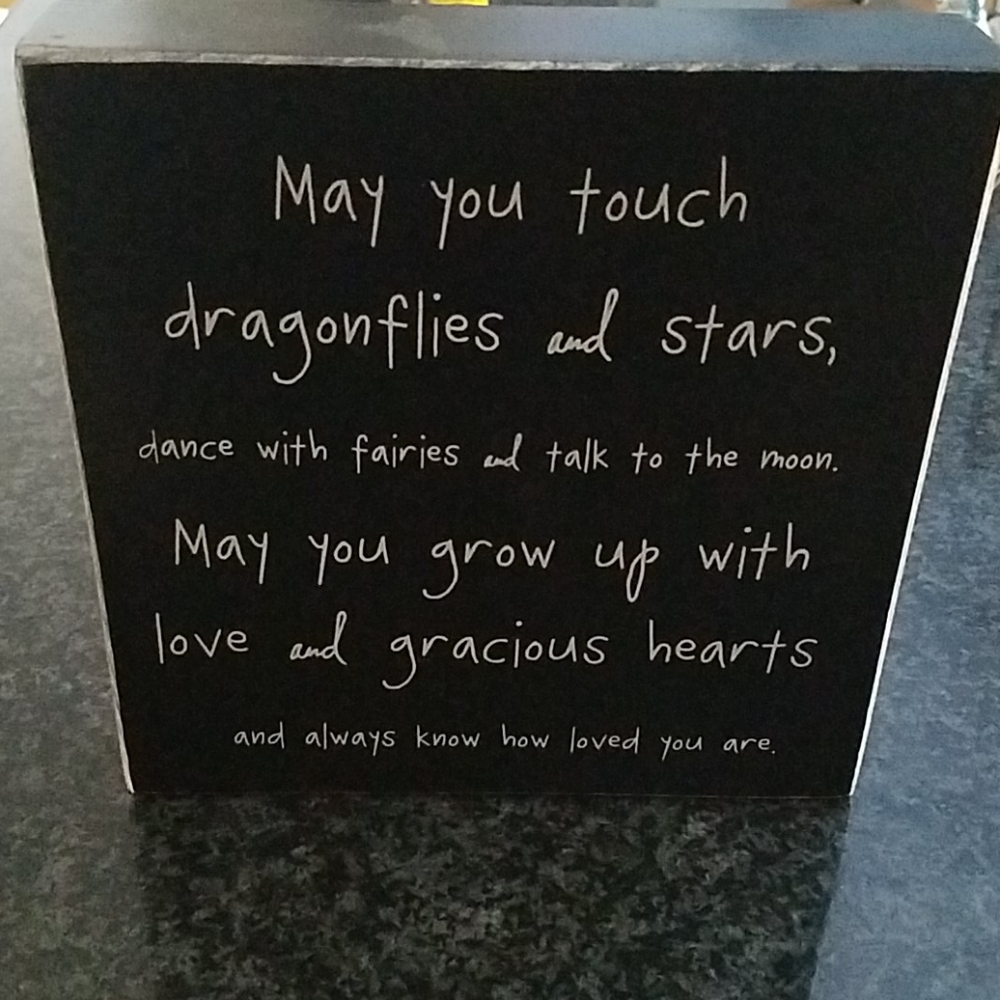 May you touch
dragonflies and stars,
dance with fairies and talk to the moon.
May you grow up with
love and gracious hearts
and always know how loved you are.